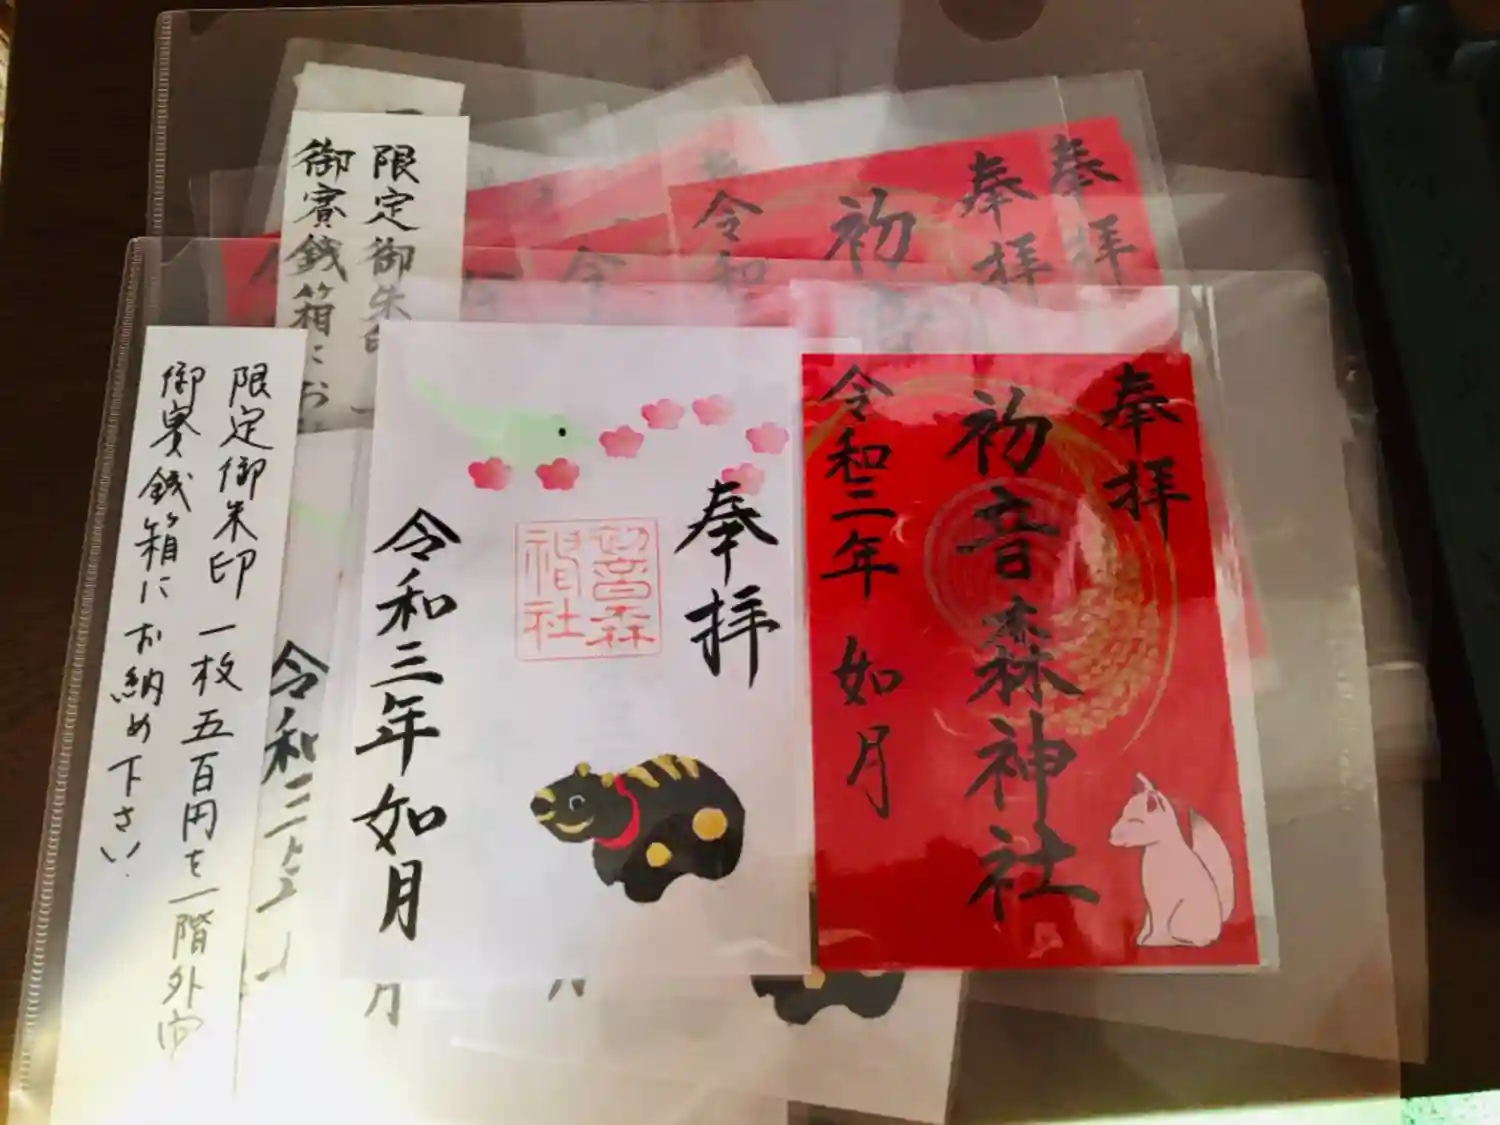 奉拝
初音森神社
令和三年 如月
奉拝
初音森
神社
令和三年如月
限定御朱印 一枚五百円を一階外
御賽銭箱にお納め下さい
限定御朱印
御賽銭箱にお
奉拝
奉拝
初
令和
令
令和三年